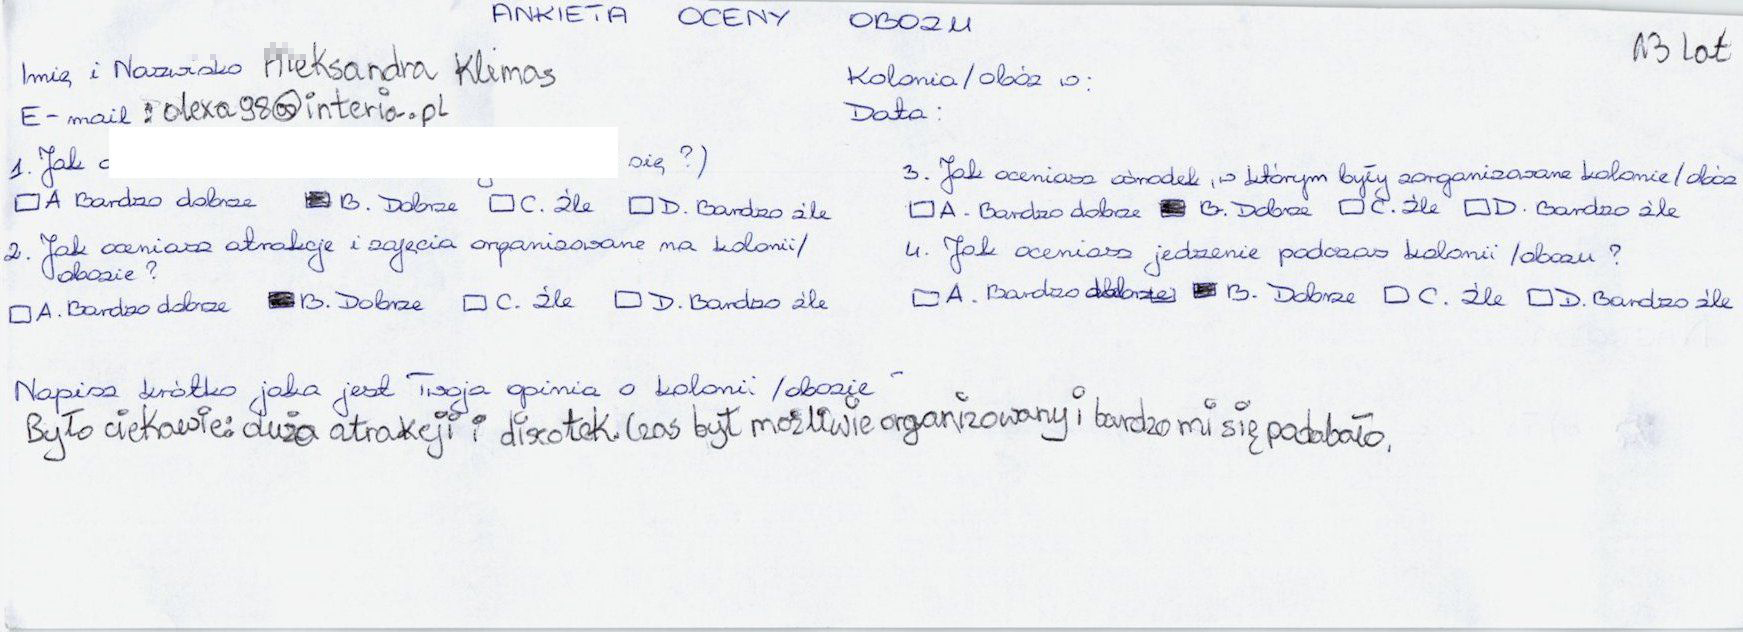 ANKIETA OCENY OBOZU
13 lat
Imię i Nazwisko Aleksandra Klimas
E-mail : olexa98@interia.pl
Kolonia/obóz w:
Data:
1. Jak się?)
A Bardzo dobrze B. Dobrze C. Źle D. Bardzo źle
2. Jak oceniasz atrakcje i zajęcia organizowane na kolonii/
obozie?
A. Bardzo dobrze B. Dobrze C. Źle D. Bardzo źle
3. Jak oceniasz ośrodek, w którym były zorganizowane kolonie/obóz
A. Bardzo dobrze B. Dobrze C. Źle D. Bardzo źle
4. Jak oceniasz jedzenie podczas kolonii/obozu?
A. Bardzo dobrze B. Dobrze C. Źle D. Bardzo źle
Napisz krótko jaka jest Twoja opinia o kolonii/obozie
Było ciekawie: dużo atrakcji i dixotek. Czas był możliwie organizowany i bardzo mi się padabało.